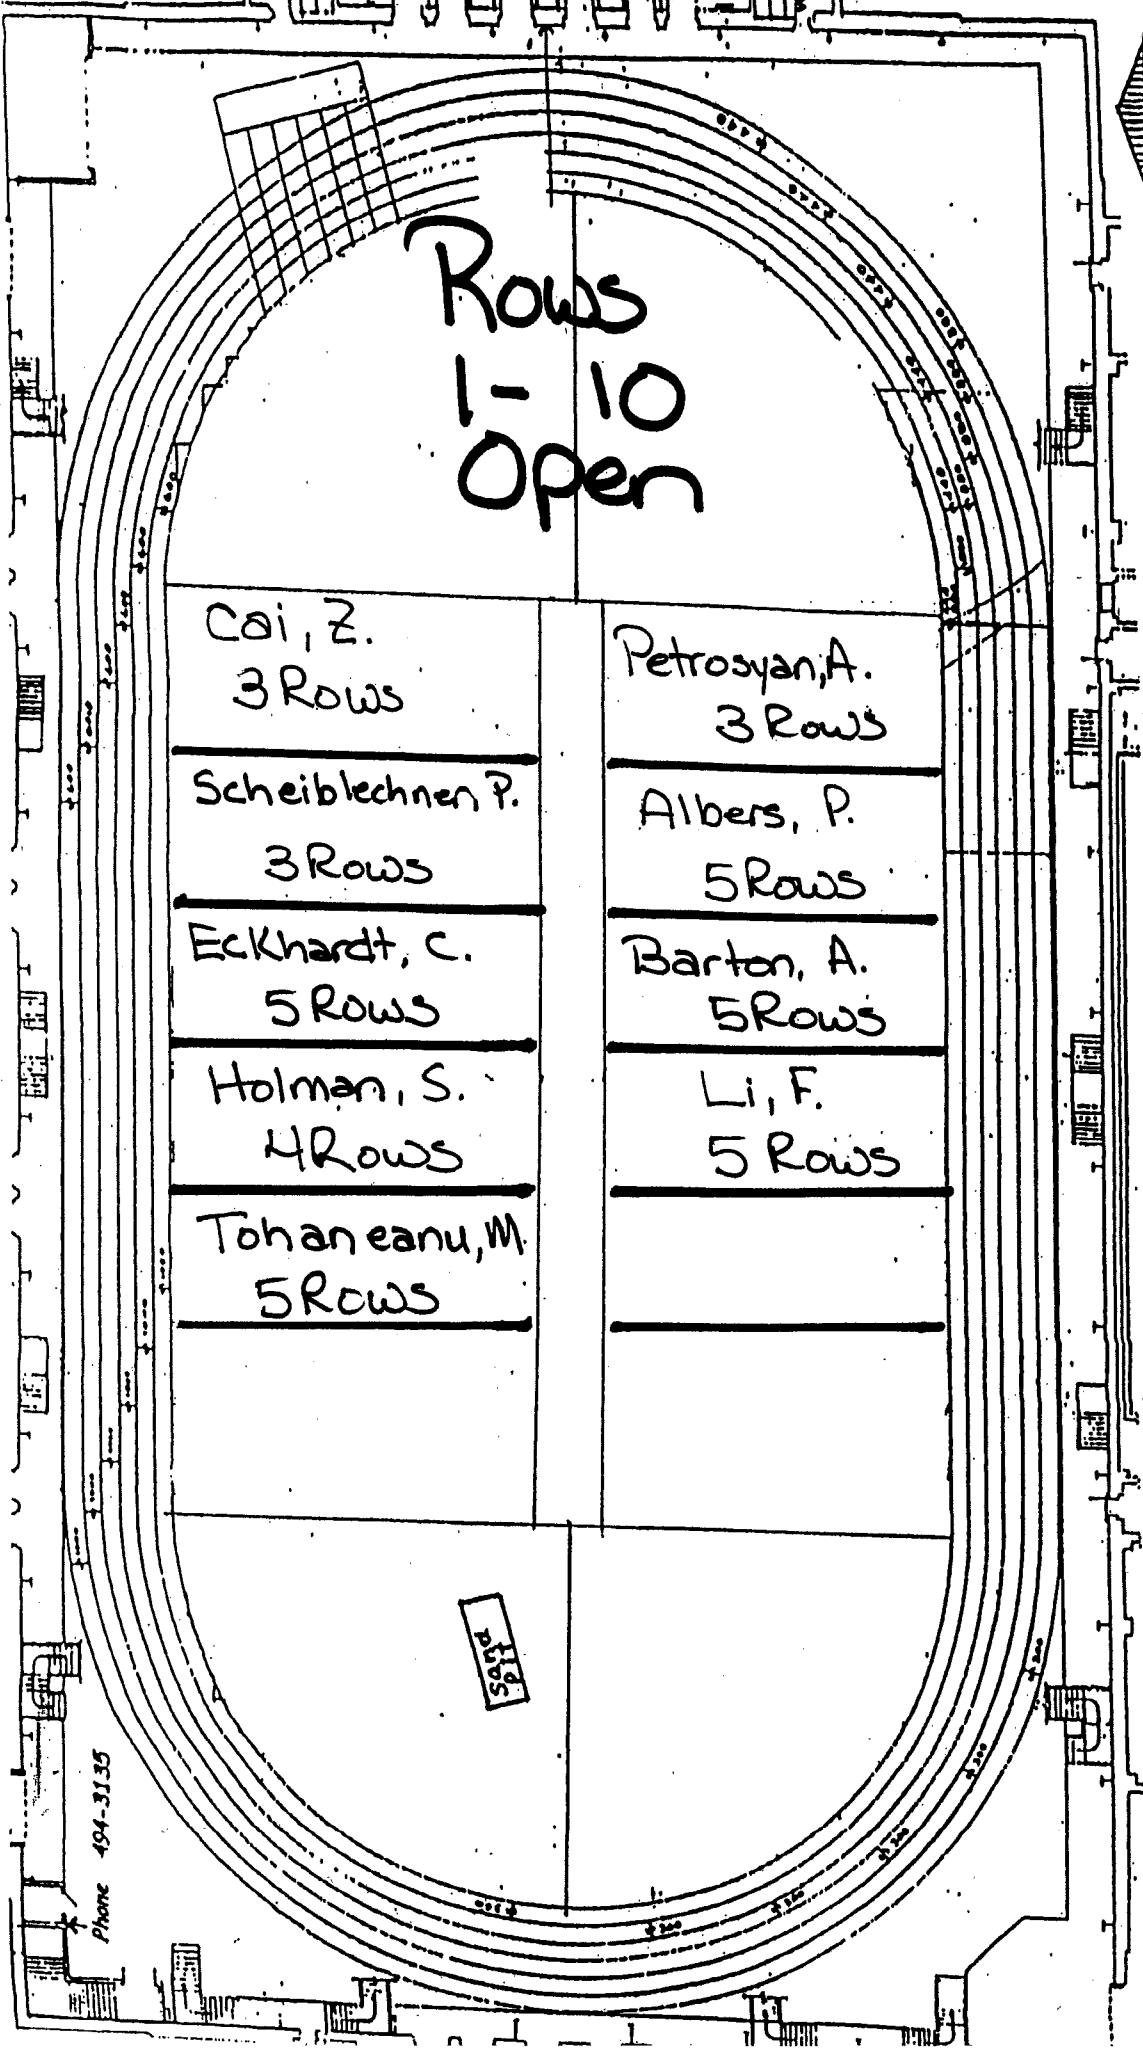 Rows
1 - 10
Open
Cai, Z.
3 Rows
Scheiblechner, P.
3 Rows
Eckhardt, C.
5 Rows
Holman, S.
4 Rows
Tohaneanu, M.
5 Rows
Petrosyan, A.
3 Rows
Albers, P.
5 Rows
Barton, A.
5 Rows
Li, F.
5 Rows
Sand
pit
Phone 494-3135